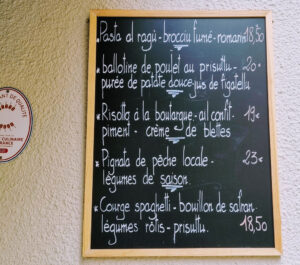 Pasta al ragù - brocciu fumé - romarin 18,50
* ballotine de poulet au prisuttu - 20€
purée de patate douce - jus de figatellu
* Risotto à la boutargue - ail confit - 19€
piment - crème de blettes
* Pignata de pêche locale - 23€
légumes de saison
* Courge spaghetti - bouillon de safran
légumes rôtis - prisuttu. 18,50
DE QUALITÉ
CULINAIRE